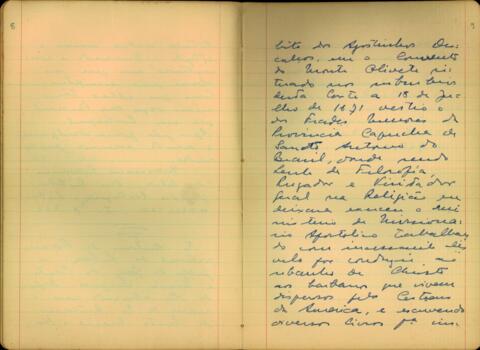 8
9
bito dos Agostinhos Des-
calços, em o Convento
do Monte Olivete si-
tuado nos suburbios
desta Corte a 18 de Ju-
lho de 1671 vestio o
dos Frades Menores da
Provincia Capucha de
Santo Antonio do
Brasil, donde sendo
Lente de Filosofia,
Prégador e Visitador
Geral na Religião
exerceu o mi-
nisterio de Missiona-
rio Apostolico trabalhan
do com incessante des
velo por conduzir ao
rebanho de Christo
aos barbaros que vivem
dispersos pelos Certoens
da America, e escrevendo
diversos livros pª ins-